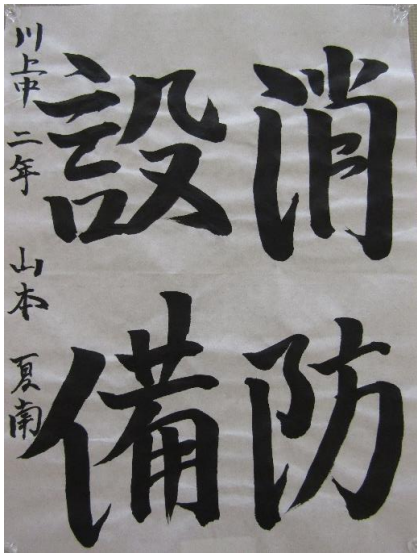 消防
設備
川上中 二年 山本 夏南